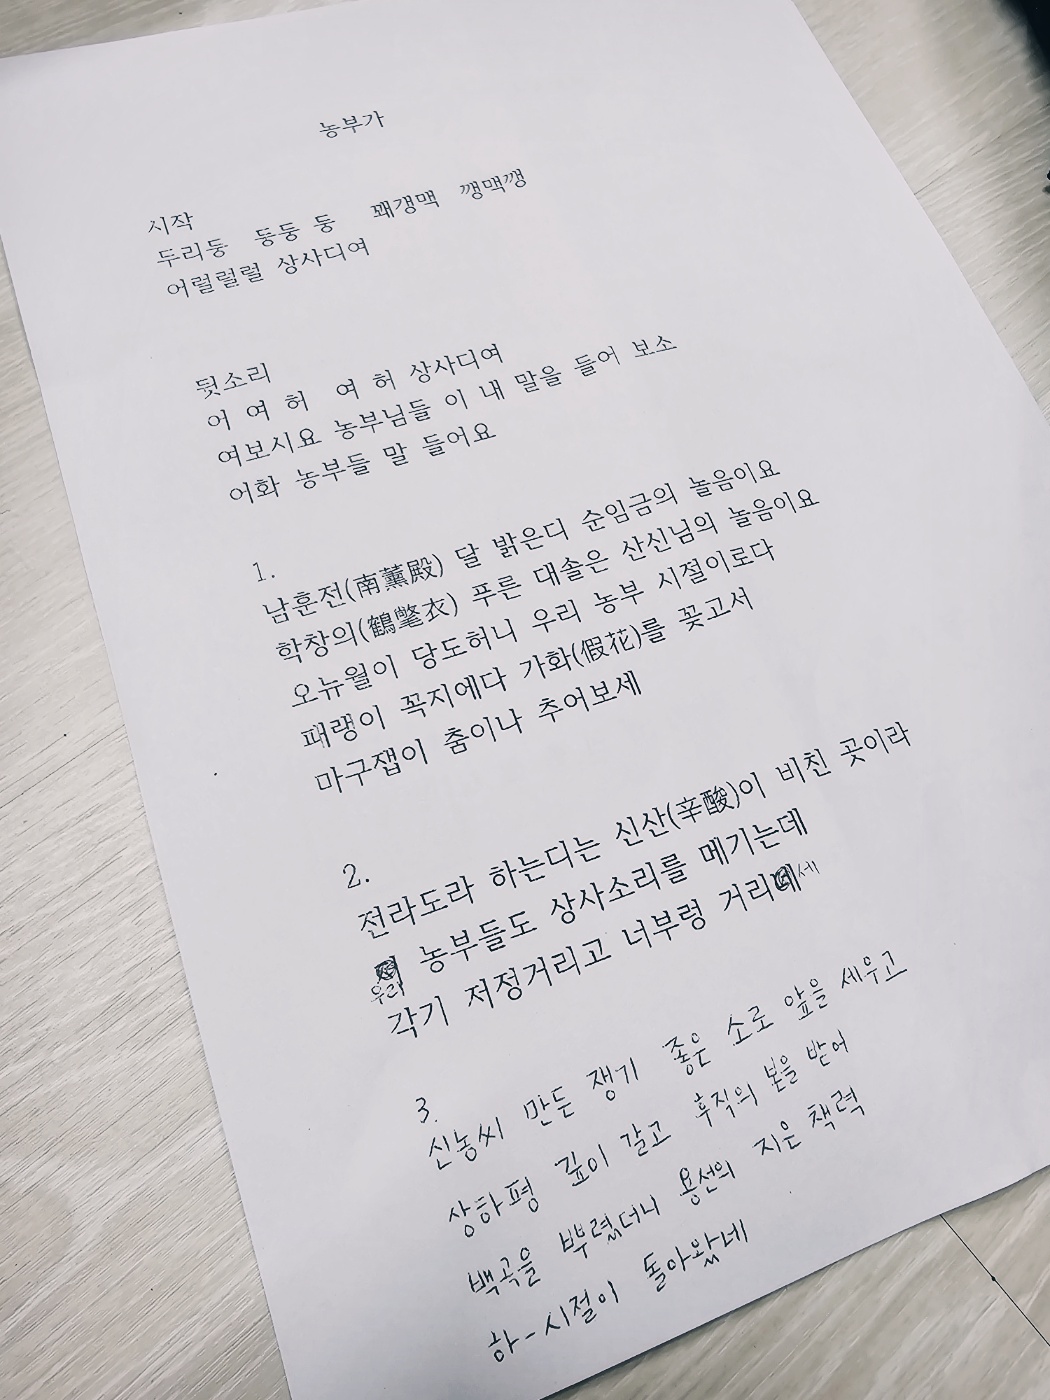 농부가
시작
두리둥 둥둥 둥 꽤갱맥 깽맥깽
어럴럴럴 상사디여
뒷소리
어 여 허 여 허 상사디여
여보시요 농부님들 이 내 말을 들어 보소
어화 농부들 말 들어요
1.
남훈전(南薰殿) 달 밝은디 순임금의 놀음이요
학창의(鶴氅衣) 푸른 대솔은 산신님의 놀음이요
오뉴월이 당도허니 우리 농부 시절이로다
패랭이 꼭지에다 가화(假花)를 꽂고서
마구잽이 춤이나 추어보세
2.
전라도라 하는디는 신산(辛酸)이 비친 곳이라
우리 농부들도 상사소리를 메기는데
각기 저정거리고 너부렁 거리세
3.
신농씨 만든 쟁기 좋은 소로 앞을 세우고
상하평 깊이 갈고 후직의 본을 받어
백곡을 뿌렸더니 용선의 지은 책력
하-시절이 돌아왔네